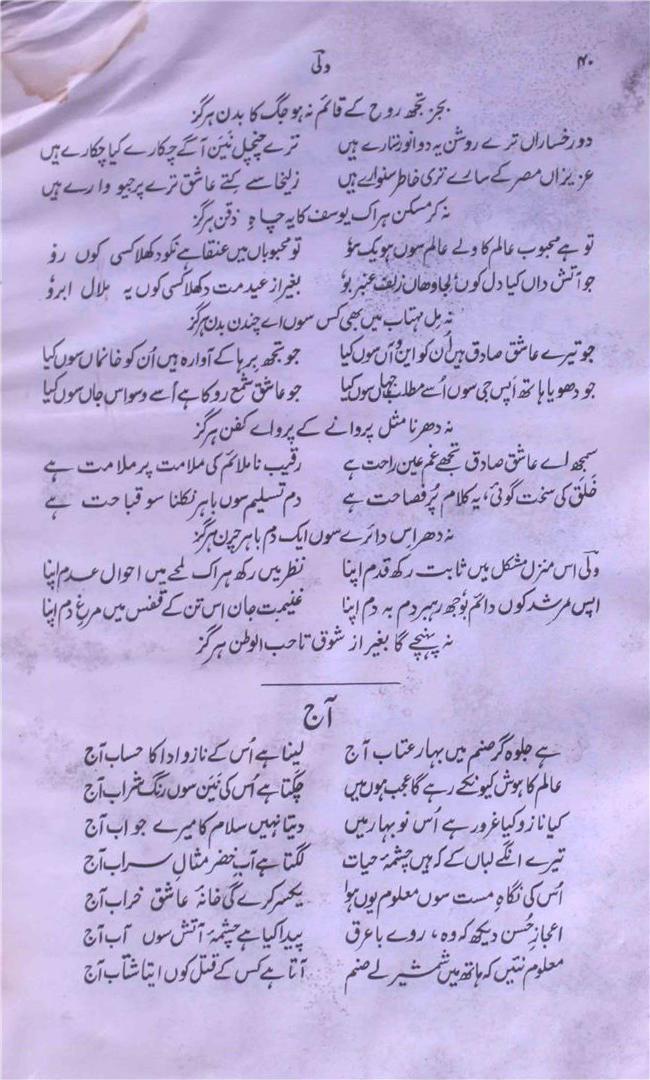 ۴۰ ولی
بجز تجھ روح کے قائم نہ ہو جگ کا بدن ہرگز
دو رخساراں ترے روشن یہ دو انور تارے ہیں ترے چنچل نین آگے چکارے کیا چکارے ہیں
عزیزاں مصر کے سارے تری خاطر سنوارے ہیں زلیخا سے کتے عاشق ترے پر جیو وارے ہیں
نہ کر مسکن ہر اک یوسف کا یہ چاہ ذقن ہرگز
تو ہے محبوب عالم کا ولے عالم سوں ہو یک سو تو محبوباں میں عنقا ہے نکو دکھلا کسی کوں رو
جو آتش داں کیا دل کوں لجاوھاں زلف عنبر بو بغیر از عید مت دکھلا کسی کوں یہ ہلال ابرو
نہ مل مہتاب میں بھی کس سوں اے چندن بدن ہرگز
جو تیرے عاشق صادق ہیں اُن کو این و آں سوں کیا جو تجھ برہا کے آوارہ ہیں اُن کو خانماں سوں کیا
جو دھویا ہاتھ اَپس جی سوں اُسے مطلب جہاں سوں کیا جو عاشق شمع رو کا ہے اُسے وسواس جاں سوں کیا
نہ دھرنا مثل پروانے کے پرواے کفن ہرگز
سمجھ اے عاشق صادق تجھے غم عین راحت ہے رقیب ناملائم کی ملامت پر ملامت ہے
خَلق کی سخت گوئی، یہ کلام پُر فصاحت ہے دم تسلیم سوں باہر نکلنا سو قباحت ہے
نہ دھر اس دائرے سوں ایک دم باہر چرن ہرگز
ولی اس منزل مشکل میں ثابت رکھ قدم اپنا نظر میں رکھ ہر اک لمحے میں احوال عدم اپنا
اپس مرشد کوں دائم بوجھ رہبر دم بہ دم اپنا غنیمت جان اس تن کے قفس میں مرغِ دم اپنا
نہ پہنچے گا بغیر از شوق تا حب الوطن ہرگز
آج
ہے جلوہ گر صنم میں بہار عتاب آج لینا ہے اُس کے ناز و ادا کا حساب آج
عالم کا ہوش کیونکے رہے گا عجب ہوں میں چھکتا ہے اُس کی نَین سوں رنگ شراب آج
کیا ناز و کیا غرور ہے اُس نو بہار میں دیتا نہیں سلام کا میرے جواب آج
تیرے انگے لباں کے کہ ہیں چشمۂ حیات لگتا ہے آب خضر مثال سراب آج
اُس کی نگاہِ مست سوں معلوم یوں ہوا یکسر کرے گی خانۂ عاشق خراب آج
اعجازِ حُسن دیکھ کہ وہ، روے با عرق پیدا کیا ہے چشمۂ آتش سوں آب آج
معلوم نئیں کہ ہاتھ میں شمشیر لے صنم آتا ہے کس کے قتل کوں ایتا شتاب آج